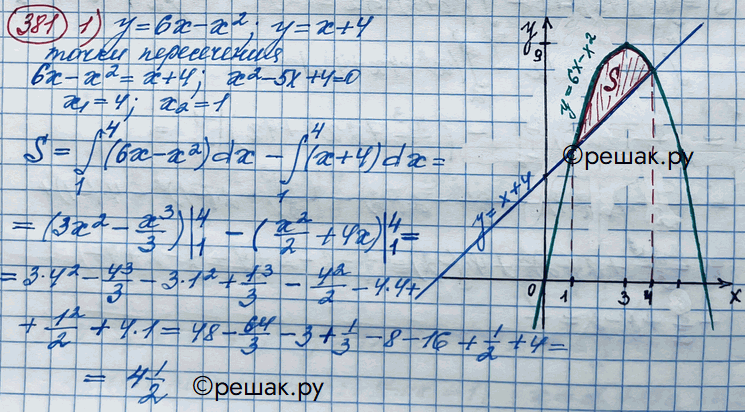 381 1) y=6x-x²; y=x+4
точки пересечения
6x-x²=x+4; x²-5x+4=0
x₁=4; x₂=1
S = ∫₁⁴ (6x-x²)dx - ∫₁⁴ (x+4)dx =
= (3x² - x³/3)|₁⁴ - (x²/2 + 4x)|₁⁴ =
= 3·4² - 4³/3 - 3·1² + 1³/3 - 4²/2 - 4·4 +
+ 1²/2 + 4·1 = 48 - 64/3 - 3 + 1/3 - 8 - 16 + 1/2 + 4 =
= 4 1/2
©решак.ру
y
9
y=6x-x²
S
©решак.ру
y=x+4
0 1 3 4 x